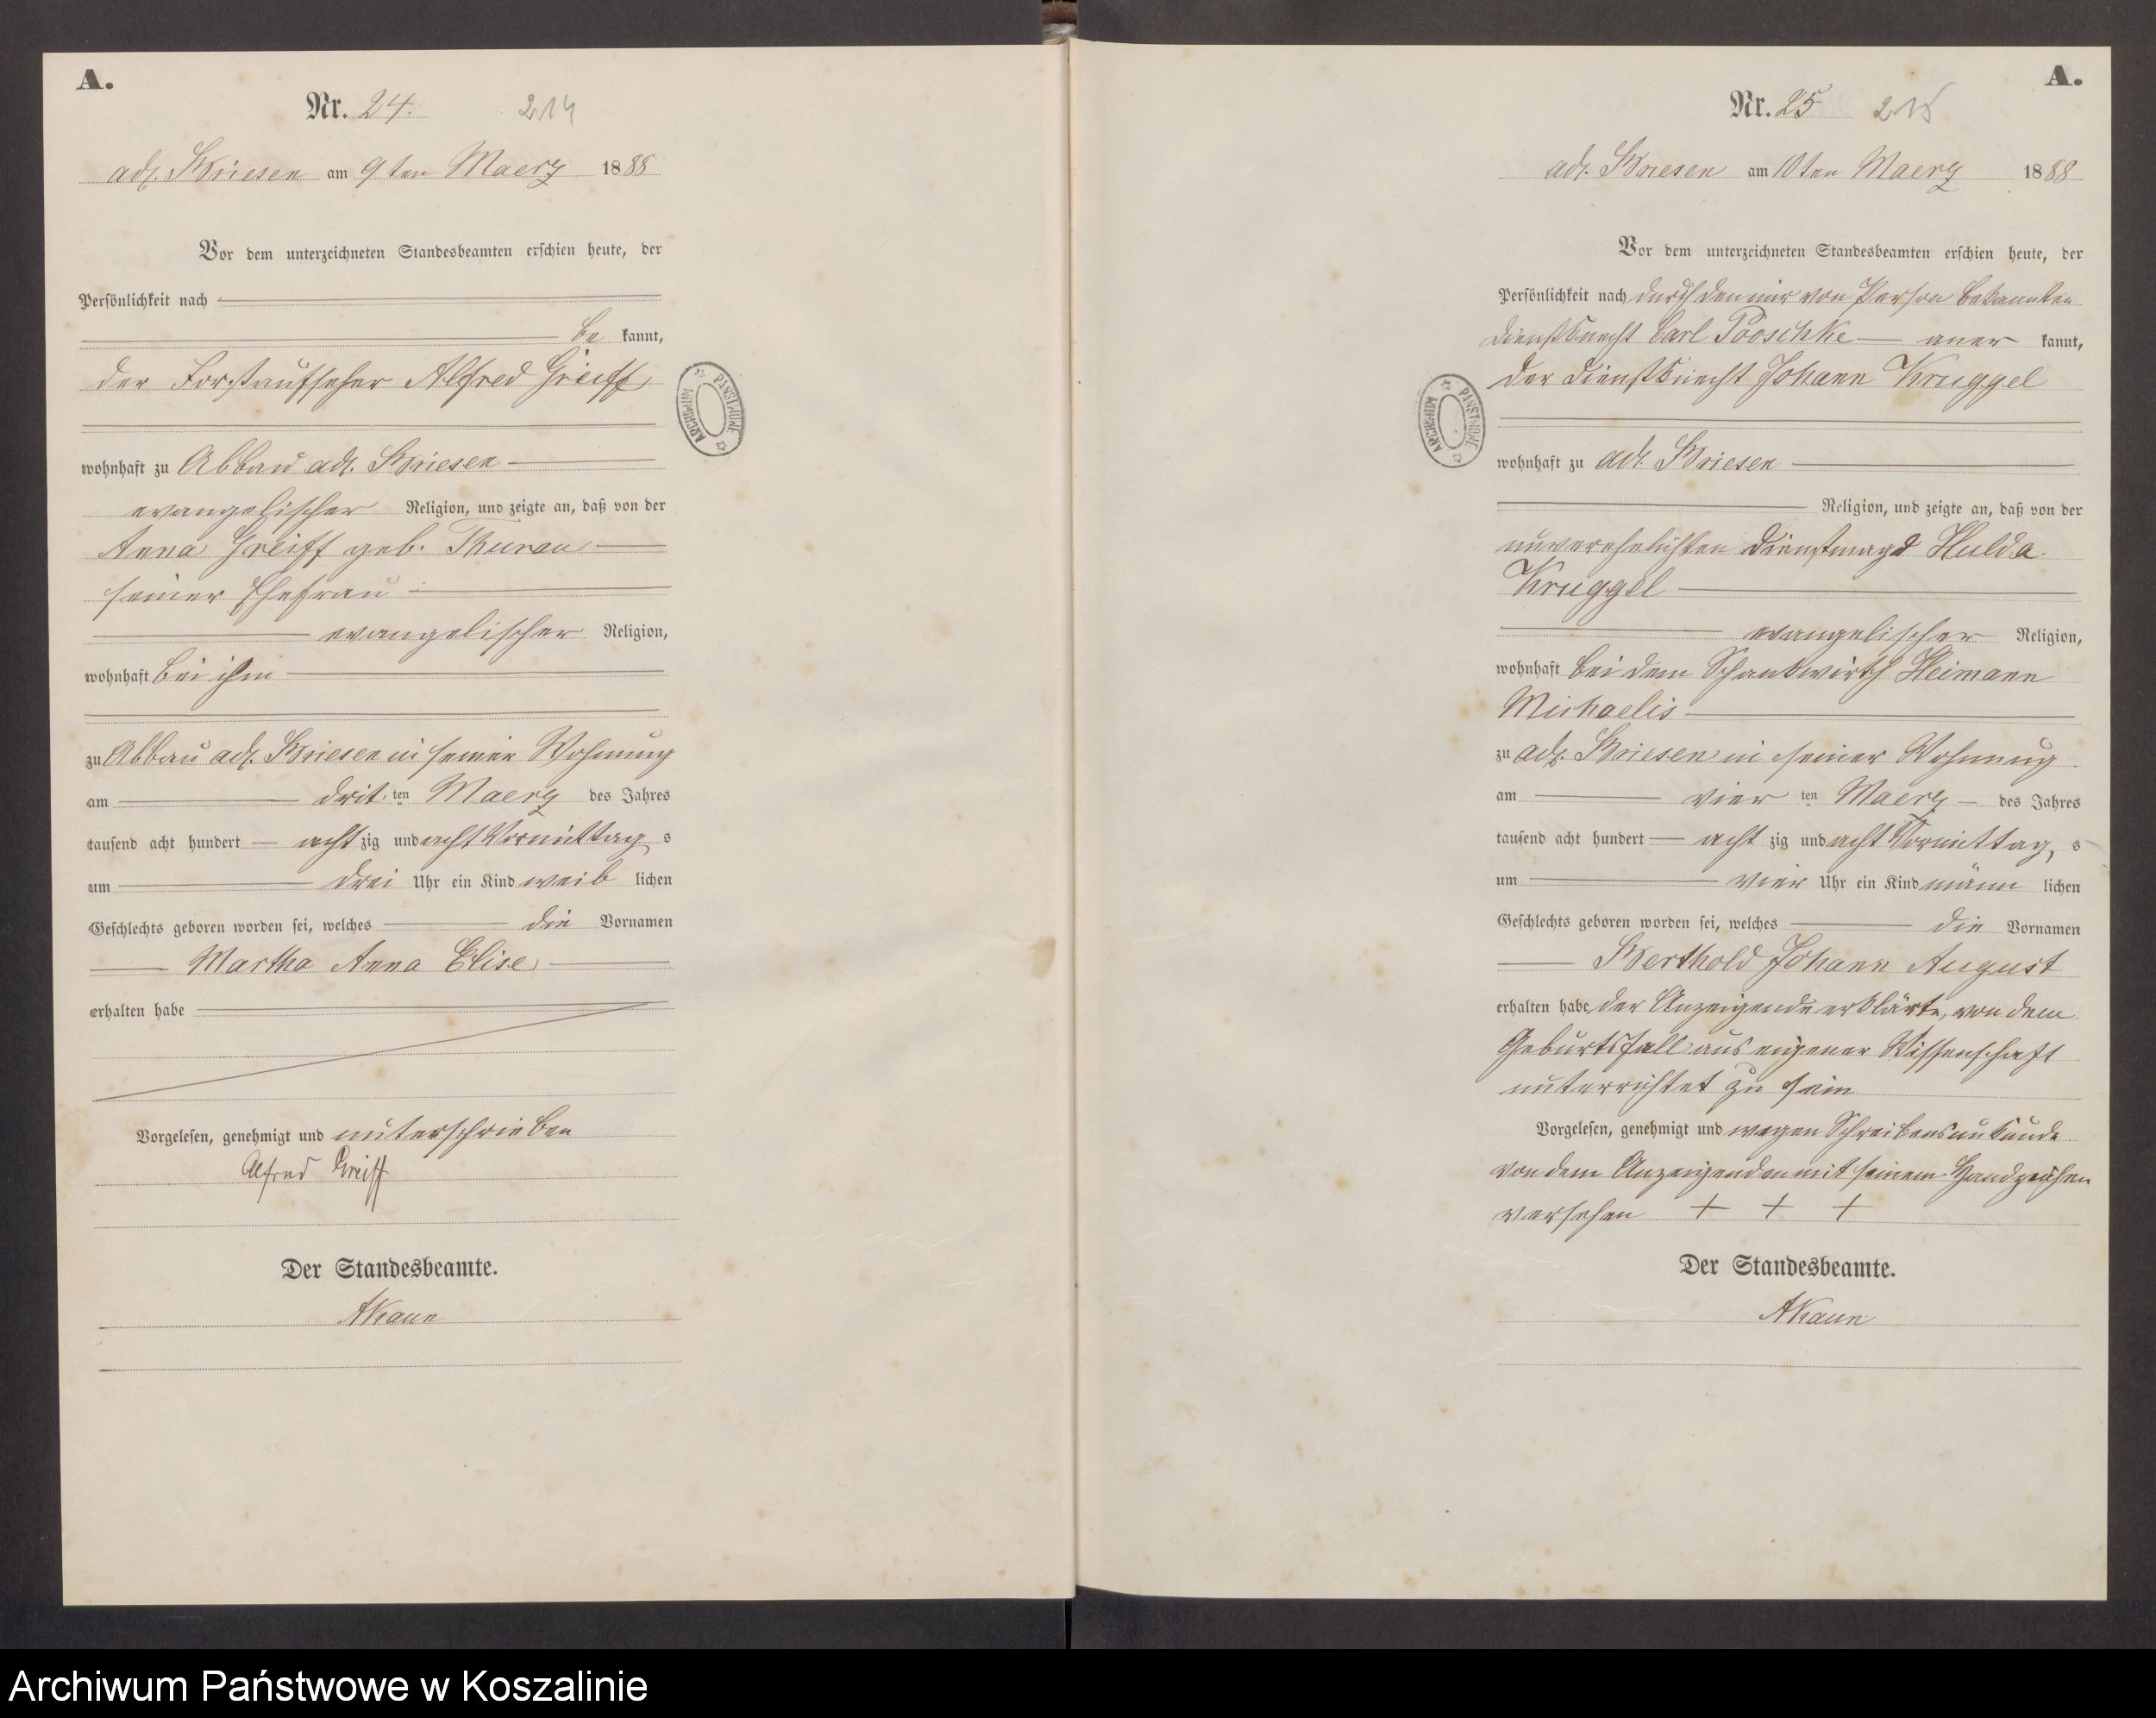 A.
Nr. 24. 214
adl. Briesen am 9ten Maerz 1888
Vor dem unterzeichneten Standesbeamten erschien heute, der
Persönlichkeit nach
be kannt,
der Forstaufseher Alfred Greiff
wohnhaft zu Abbau adl. Briesen
evangelischer Religion, und zeigte an, daß von der
Anna Greiff geb. Thurau
seiner Ehefrau
evangelischer Religion,
wohnhaft bei ihm
zu Abbau adl. Briesen in seiner Wohnung
am drit ten Maerz des Jahres
tausend acht hundert acht zig und acht Vormittag s
um drei Uhr ein Kind weib lichen
Geschlechts geboren worden sei, welches die Vornamen
Martha Anna Elise
erhalten habe
Vorgelesen, genehmigt und unterschrieben
Alfred Greiff
Der Standesbeamte.
AKaun
A.
Nr. 25 215
adl. Briesen am 10ten Maerz 1888
Vor dem unterzeichneten Standesbeamten erschien heute, der
Persönlichkeit nach durch den mir von Person bekannten
Dienstknecht Carl Pooschke aner kannt,
der Dienstknecht Johann Kruggel
wohnhaft zu adl. Briesen
Religion, und zeigte an, daß von der
unverehelichten Dienstmagd Hulda
Kruggel
evangelischer Religion,
wohnhaft bei dem Schankwirth Heimann
Michaelis
zu adl. Briesen in seiner Wohnung
am vier ten Maerz des Jahres
tausend acht hundert acht zig und acht Vormittag, s
um vier Uhr ein Kind männ lichen
Geschlechts geboren worden sei, welches die Vornamen
Berthold Johann August
erhalten habe der Anzeigende erklärte, von dem
Geburtsfall aus eigener Wissenschaft
unterrichtet zu sein
Vorgelesen, genehmigt und wegen Schreibensunkunde
von dem Anzeigenden mit seinem Handzeichen
versehen + + +
Der Standesbeamte.
AKaun
ARCHIWUM PAŃSTWOWE
ARCHIWUM PAŃSTWOWE
Archiwum Państwowe w Koszalinie